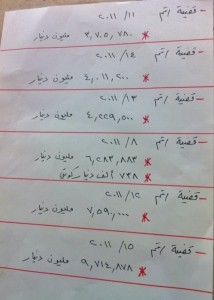 - قضية رقم ١١ / ٢٠١١
* ٣,٧٠٥,٧٨٠ مليون دينار
- قضية رقم ١٤ / ٢٠١١
* ٤,٠١١,٢٠٠ مليون دينار
- قضية رقم ١٣ / ٢٠١١
* ٤,٢٢٩,٥٠٠ مليون دينار
- قضية رقم ٨ / ٢٠١١
* ٦,٢٨٣,٨٨٣ مليون دينار
* ٧٣٨ الف دينار كويتي
- قضية رقم ١٢ / ٢٠١١
* ٧,٥٩٠,٠٠٠ مليون دينار
- قضية رقم ١٥ / ٢٠١١
* ٩,٧١٤,٨٧٨ مليون دينار